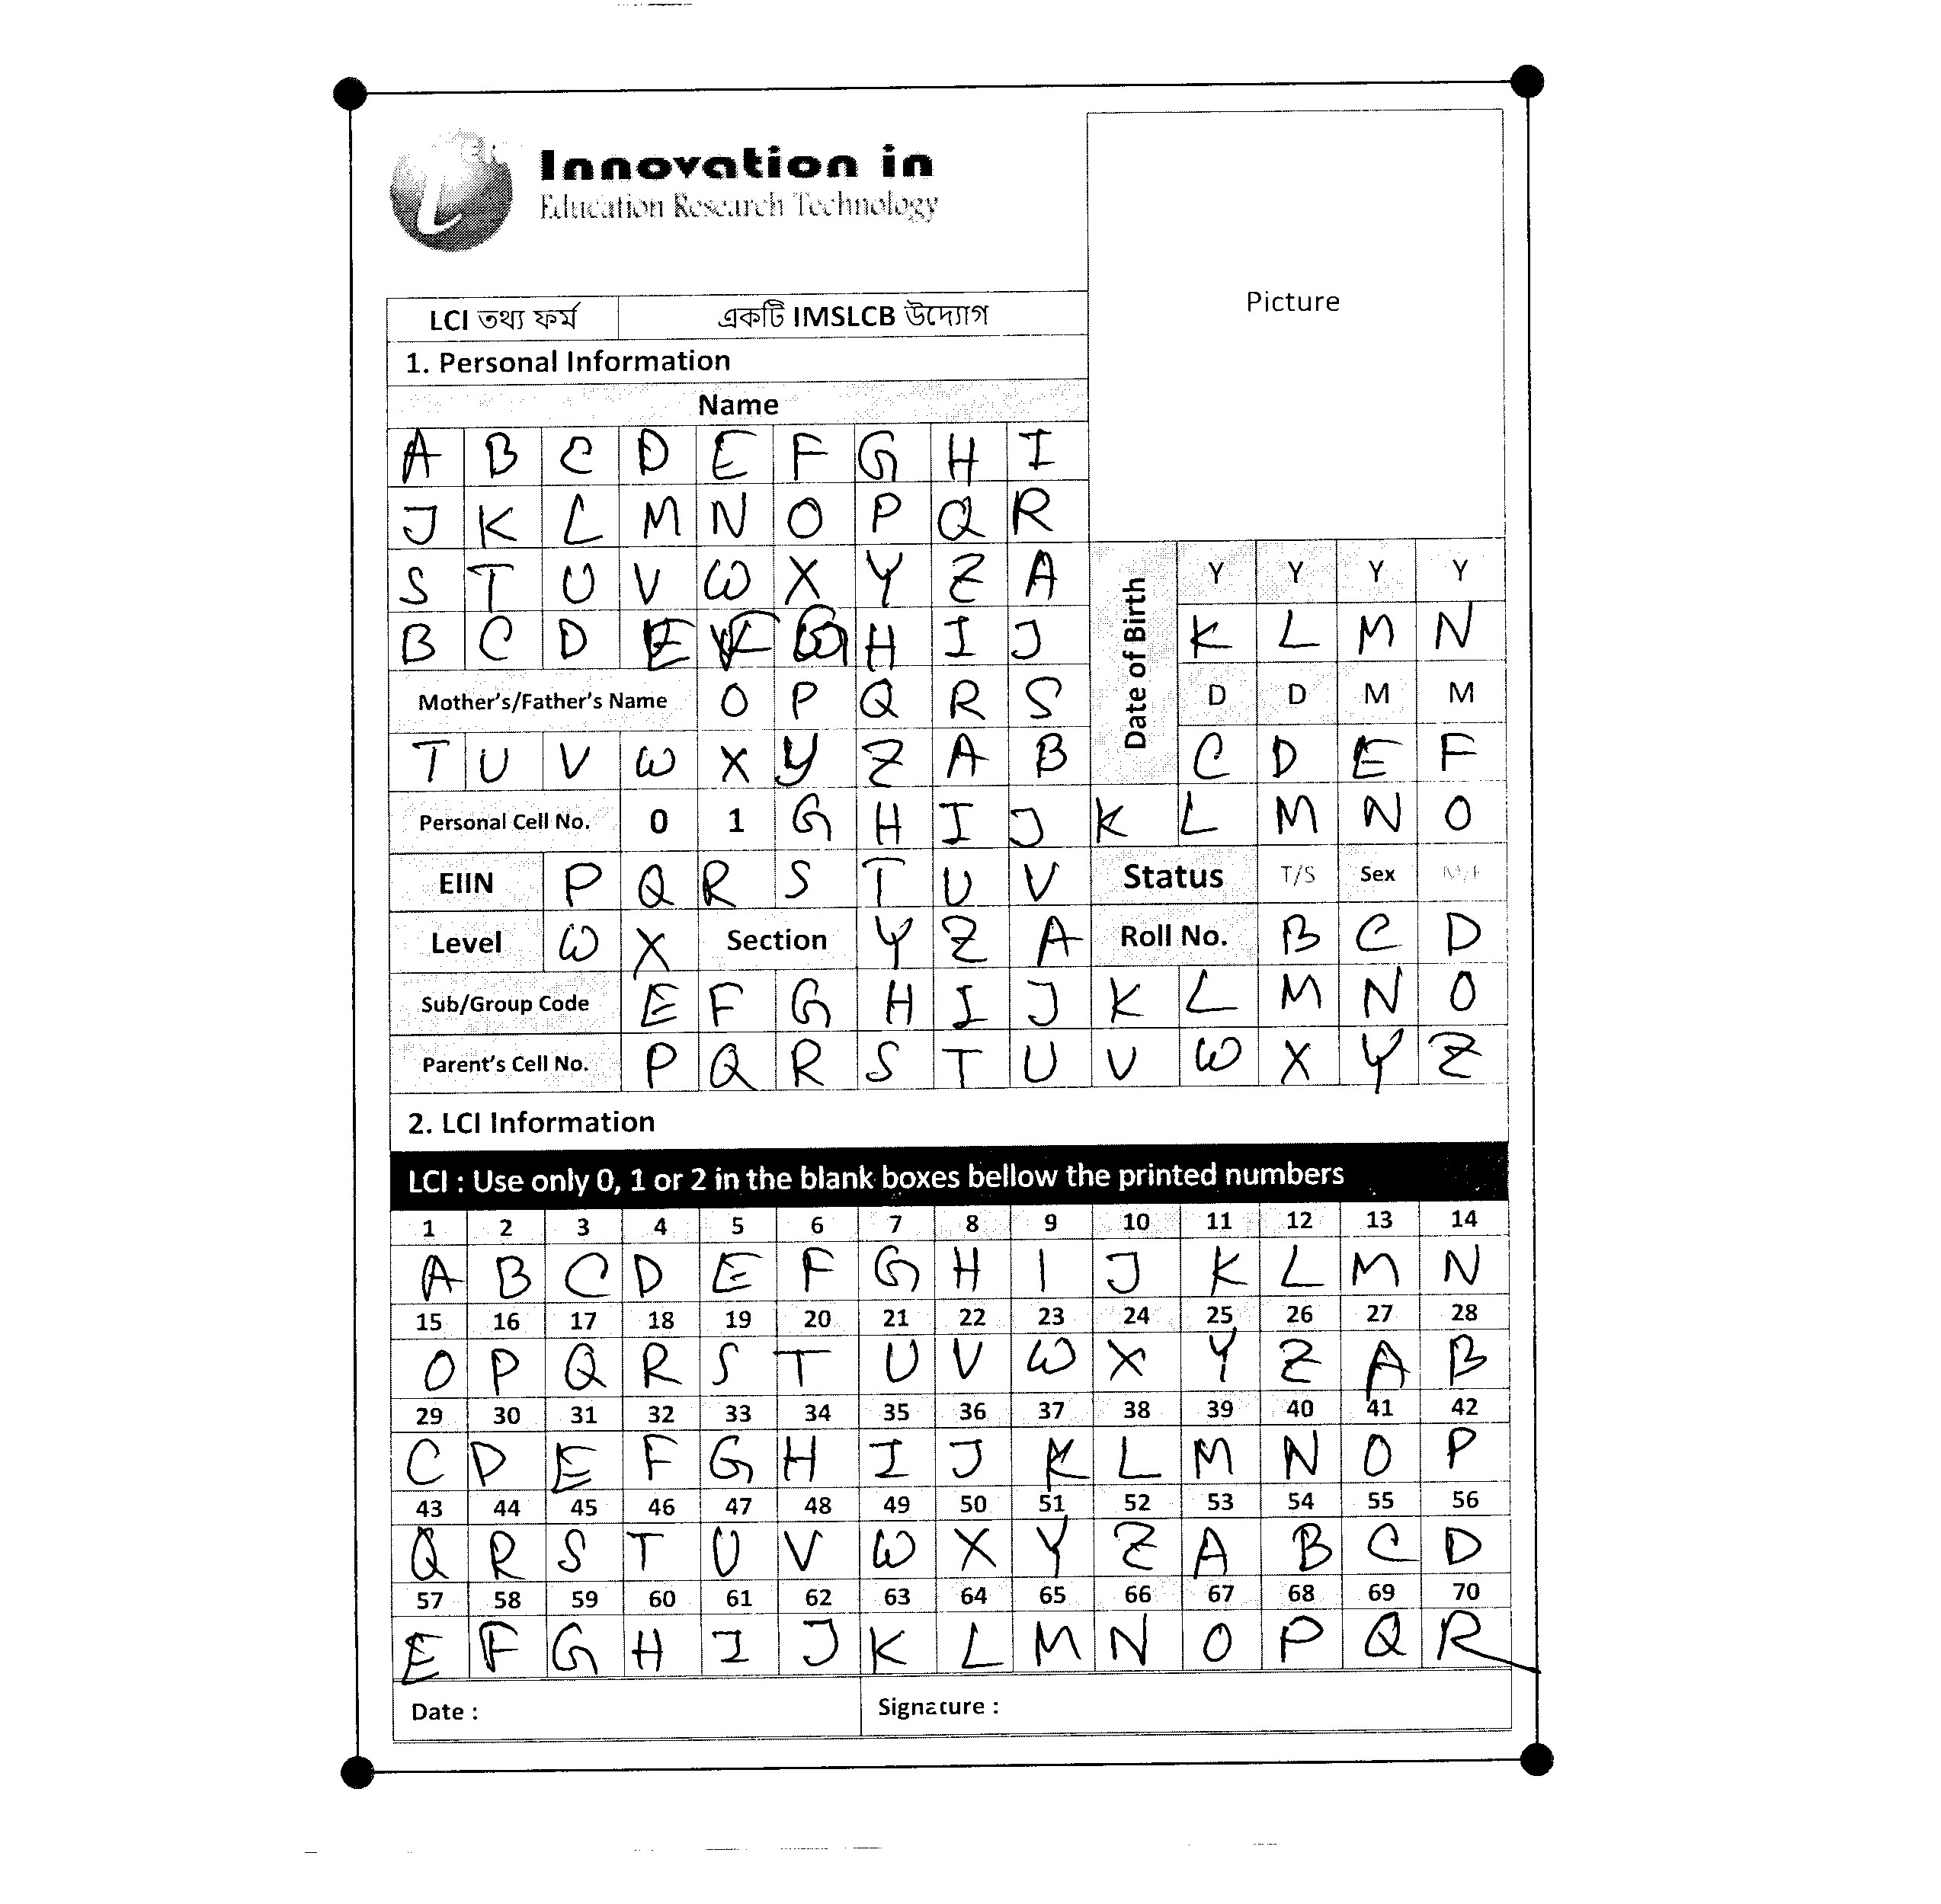 Innovation in
Education Research Technology
Picture
LCI তথ্য ফর্ম একটি IMSLCB উদ্যোগ
1. Personal Information
Name
A B C D E F G H I
J K L M N O P Q R
S T U V W X Y Z A
Date of Birth Y Y Y Y
B C D E F G H I J K L M N
Mother's/Father's Name O P Q R S D D M M
T U V W X Y Z A B C D E F
Personal Cell No. 0 1 G H I J K L M N O
EIIN P Q R S T U V Status T/S Sex M/F
Level W X Section Y Z A Roll No. B C D
Sub/Group Code E F G H I J K L M N O
Parent's Cell No. P Q R S T U V W X Y Z
2. LCI Information
LCI : Use only 0, 1 or 2 in the blank boxes bellow the printed numbers
1 2 3 4 5 6 7 8 9 10 11 12 13 14
A B C D E F G H I J K L M N
15 16 17 18 19 20 21 22 23 24 25 26 27 28
O P Q R S T U V W X Y Z A B
29 30 31 32 33 34 35 36 37 38 39 40 41 42
C D E F G H I J K L M N O P
43 44 45 46 47 48 49 50 51 52 53 54 55 56
Q R S T U V W X Y Z A B C D
57 58 59 60 61 62 63 64 65 66 67 68 69 70
E F G H I J K L M N O P Q R
Date : Signature :